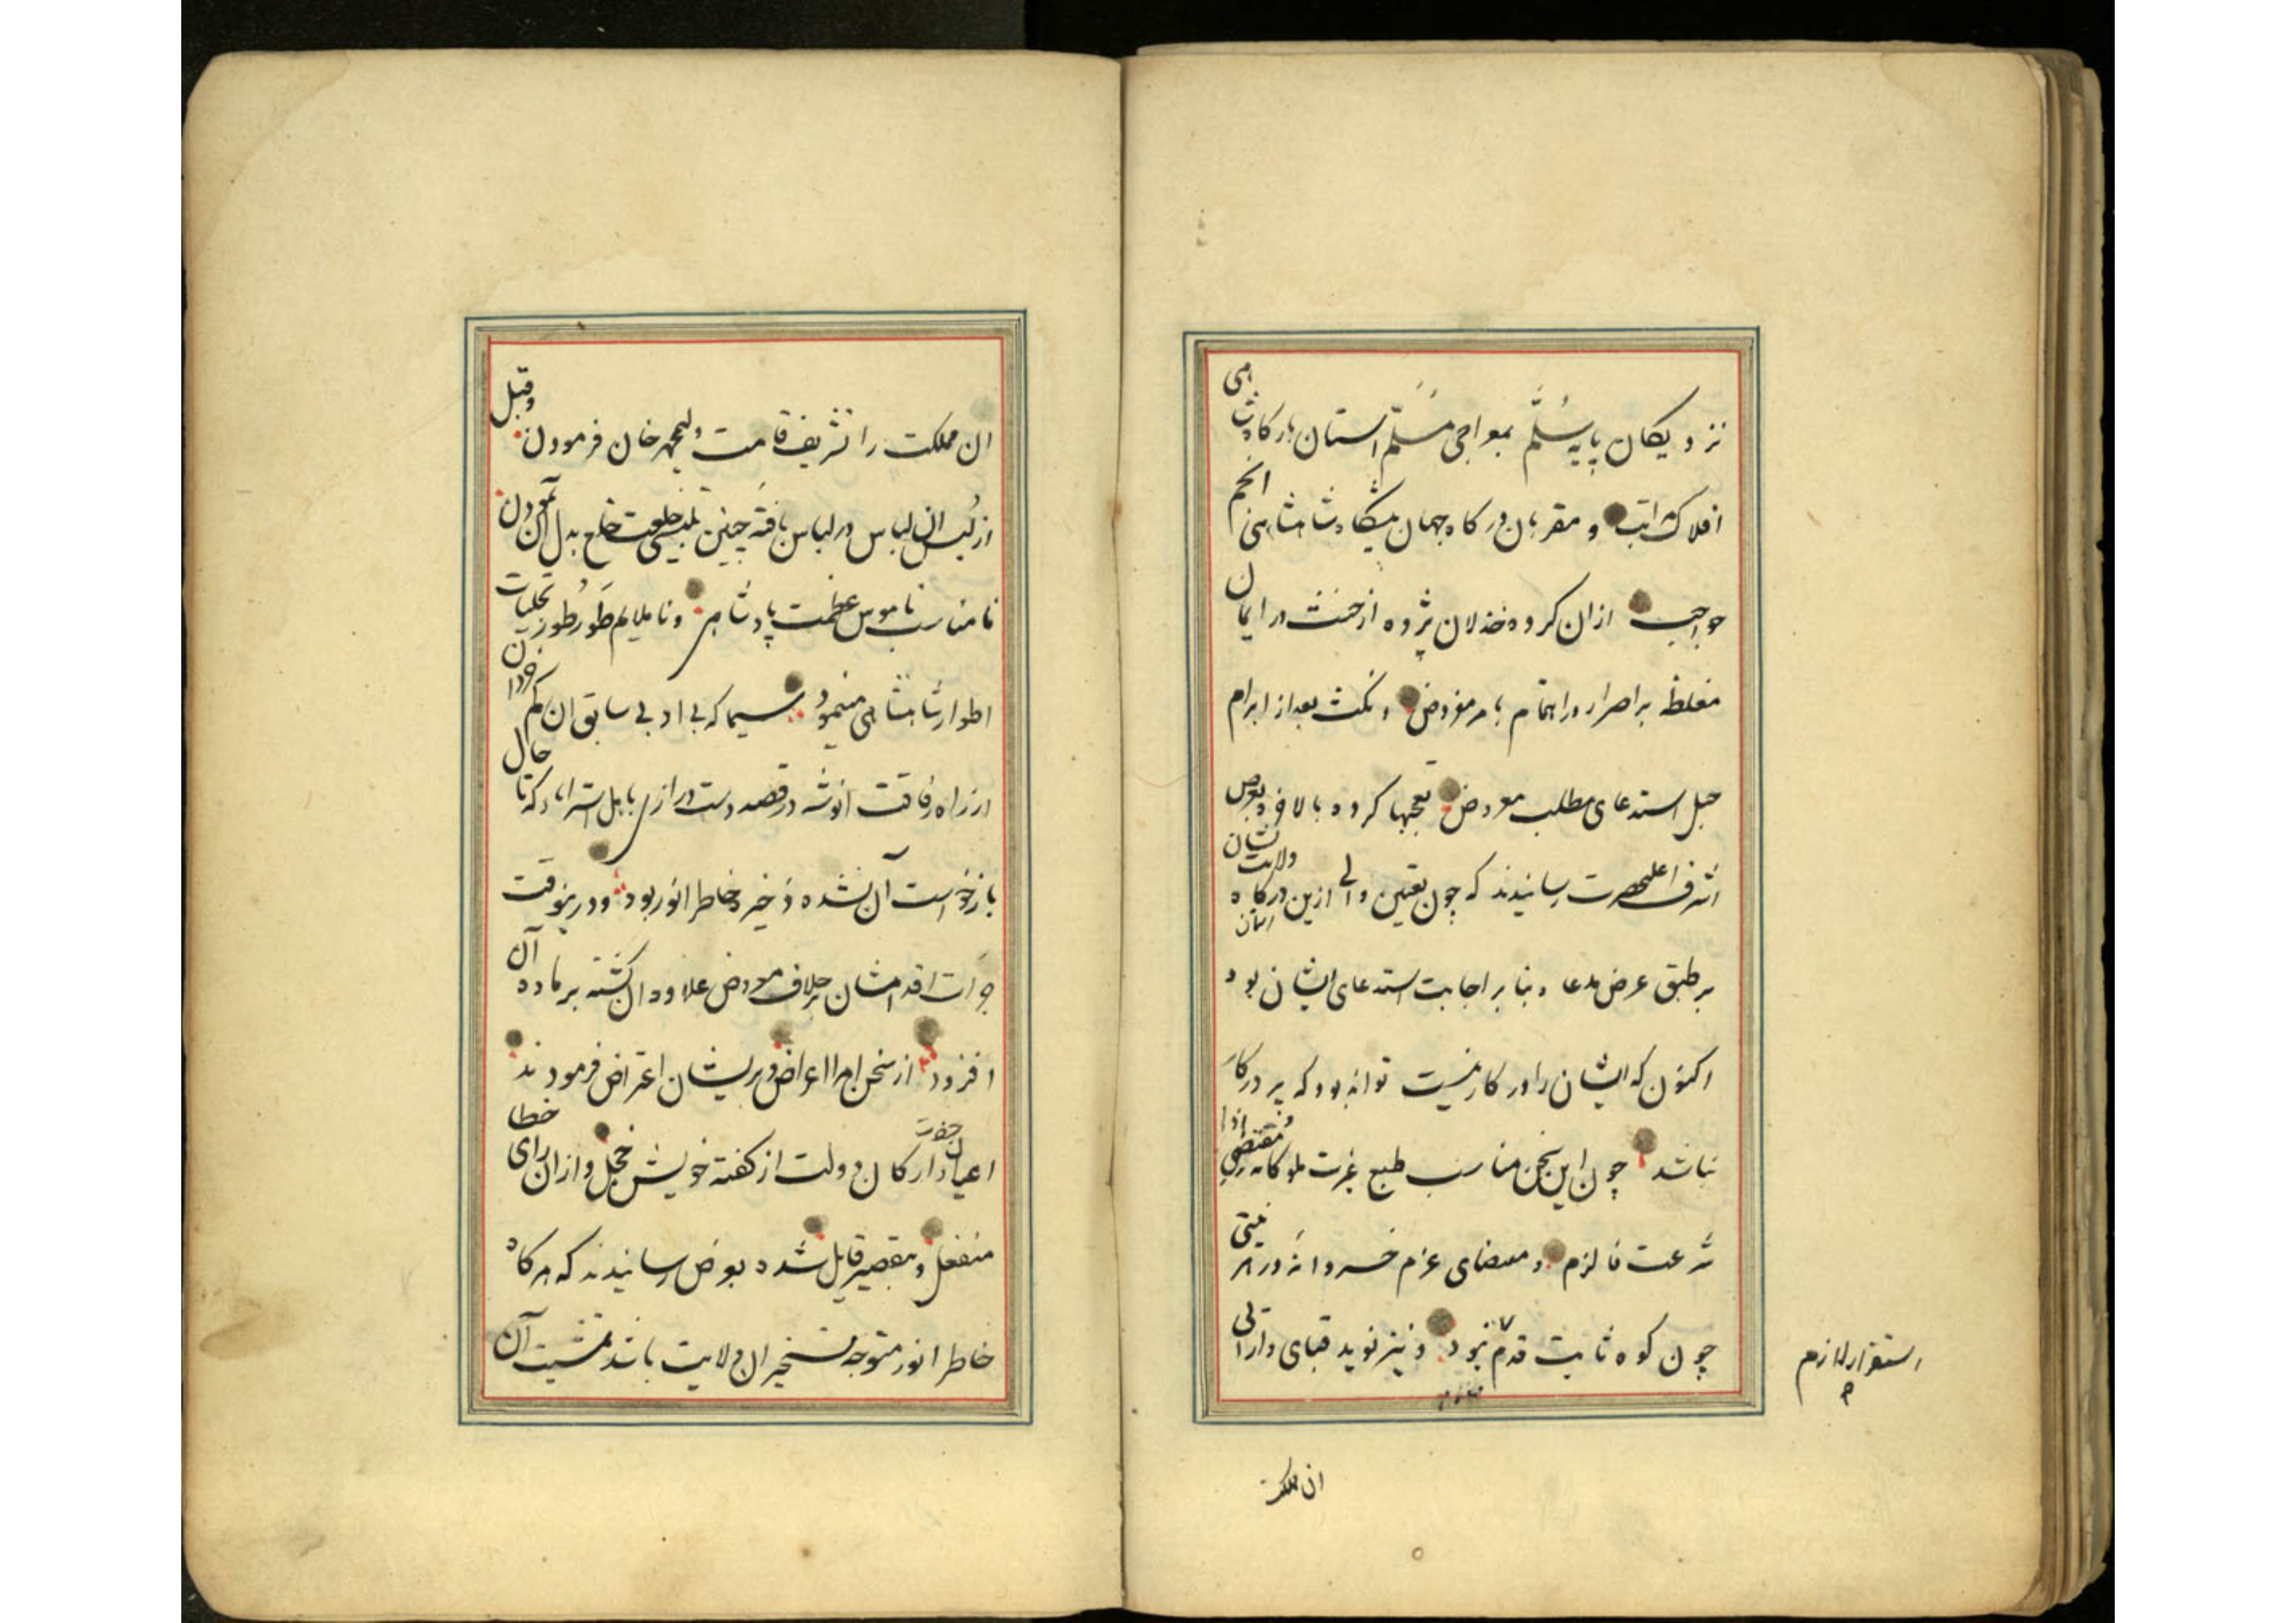 نزدیکان پایه سُلَّم بمواجی مُسَلَّم استان بارکاه شاهی
افلاک مراتب و مقربان درکاه جهان پیکاه شاهنشاهی انجم
مواجب ازان کروه خذلان پژوه از حنث در ایمان
مغلظه بر اصرار در اهتمام بامر مفروض و نکث بعد از ابرام
حبل استدعای مطلب معروض تعجبها کرده بالاخره بعرض
اشرف اعلیحضرت رسانیدند که چون تعیین والی ازین درکاه ولایت نشان
برطبق عرض مدعا و بنا بر اجابت استدعای ایشان بود
اکنون که ایشان را در کار نیست تواند بود که پر درکار
نباشد چون این سخن مناسب طبع غیرت ملوکانه و مقتضی
سُرعت فا لزم و مقتضای عزم خسروانه در
چون کوه ثابت قدم نبود و نیز نوید قبای دارائی
استقرار لازم
ان مملکت
ان مملکت را تشریف قامت ولیمحمد خان فرمودن و قبل
از لبس ان لباس در لباس بافته چنین بخلعت خلع بدل آن نمودن
نامناسب ناموس عظمت پادشاهی و ناملایم طَور طُور تجلیات
اطوار شاهنشاهی مینمود سیما که بی ادبی سابق ان کم خردان
از راه رفاقت انوشه در قصد دست درازی باهل استراباد که تا حال
بازخواست آن نشده ذخیره خاطر انور بود و درینوقت
جرات اقدامشان بر خلاف معروض علاوه ان کشته بر ماده آن
افزود از سخن امرا اعراض و بر ایشان اعتراض فرمودند
اعیان حضرت و ارکان دولت از کفته خویش خجل و ازان رای خطا
منفعل و بتقصیر قایل شده بعرض رسانیدند که هرکاه
خاطر انور متوجه تسخیر ان ولایت باشد تمشیت آن